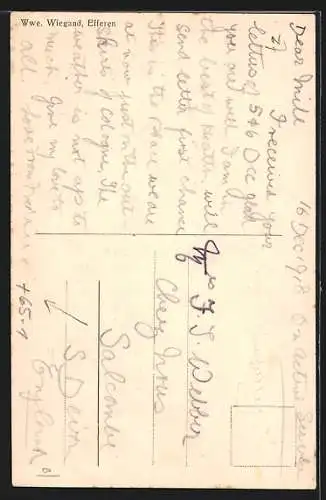 Wwe. Wiegand, Efferen
16 Dec 1918 On Active Service
Dear
I received your
letters of 5 & 6 Dec glad
you are well I am in
the best of health, will
send letter first chance
This is the place we are
at now just on the out
skirts of Cologne, the
weather is not up to
much Give my love to
all. Love from
Mrs F. J. Webber
Salcombe
S Devon
England